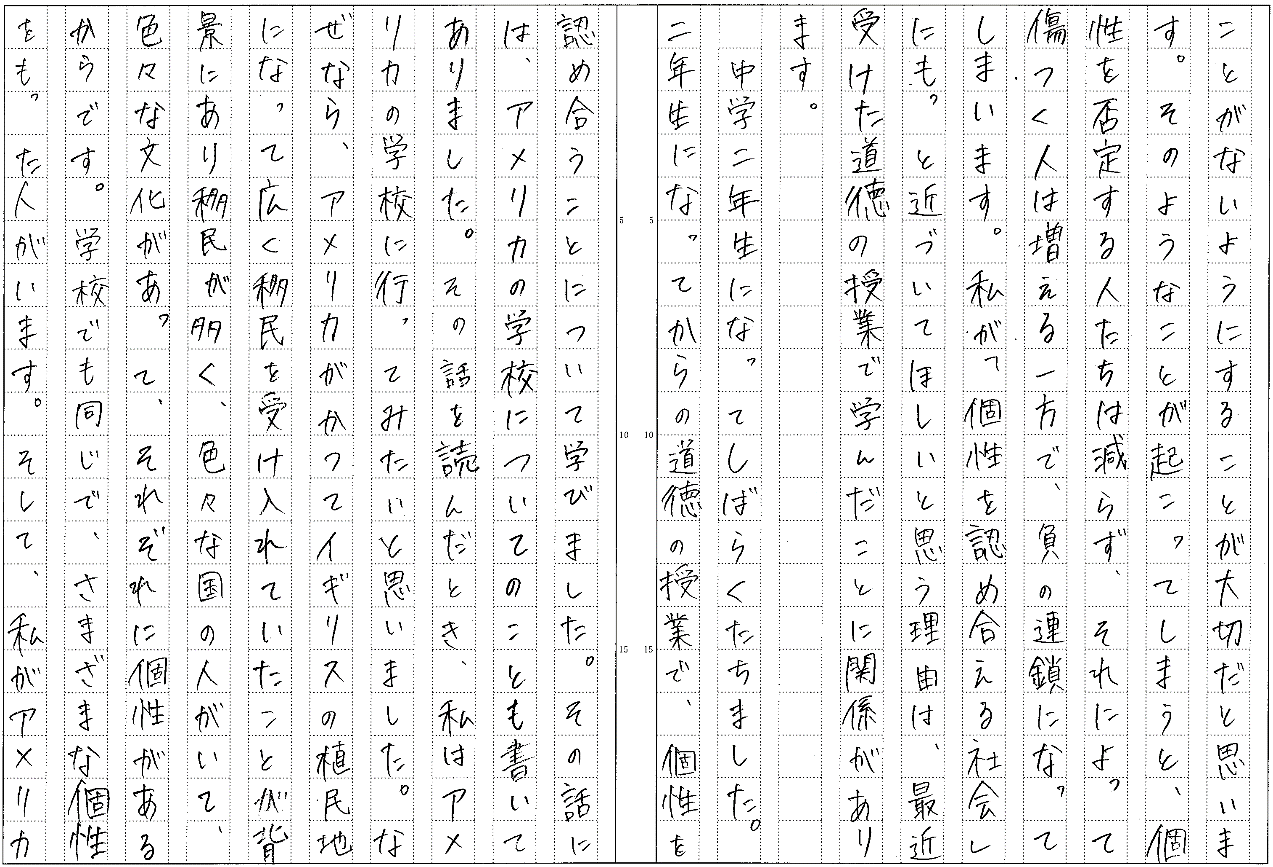 ことがないようにすることが大切だと思いま
す。そのようなことが起こってしまうと、個
性を否定する人たちは減らず、それによって
傷つく人は増える一方で、負の連鎖になって
しまいます。私が、個性を認め合える社会し
にも。と近づいてほしいと思う理由は、最近
受けた道徳の授業で学んだことに関係があり
ます。
中学二年生になってしばらくたちました。
二年生になってからの道徳の授業で、個性を
認め合うことについて学びました。その話に
は、アメリカの学校についてのことも書いて
ありました。その話を読んだとき、私はアメ
リカの学校に行ってみたいと思いました。な
ぜなら、アメリカがかつてイギリスの植民地
になって広く移民を受け入れていたことが背
景にあり移民が多く、色々な国の人がいて、
色々な文化があって、それぞれに個性がある
からです。学校でも同じで、さまざまな個性
をもった人がいます。そして、私がアメリカ
5
5
10
10
15
15